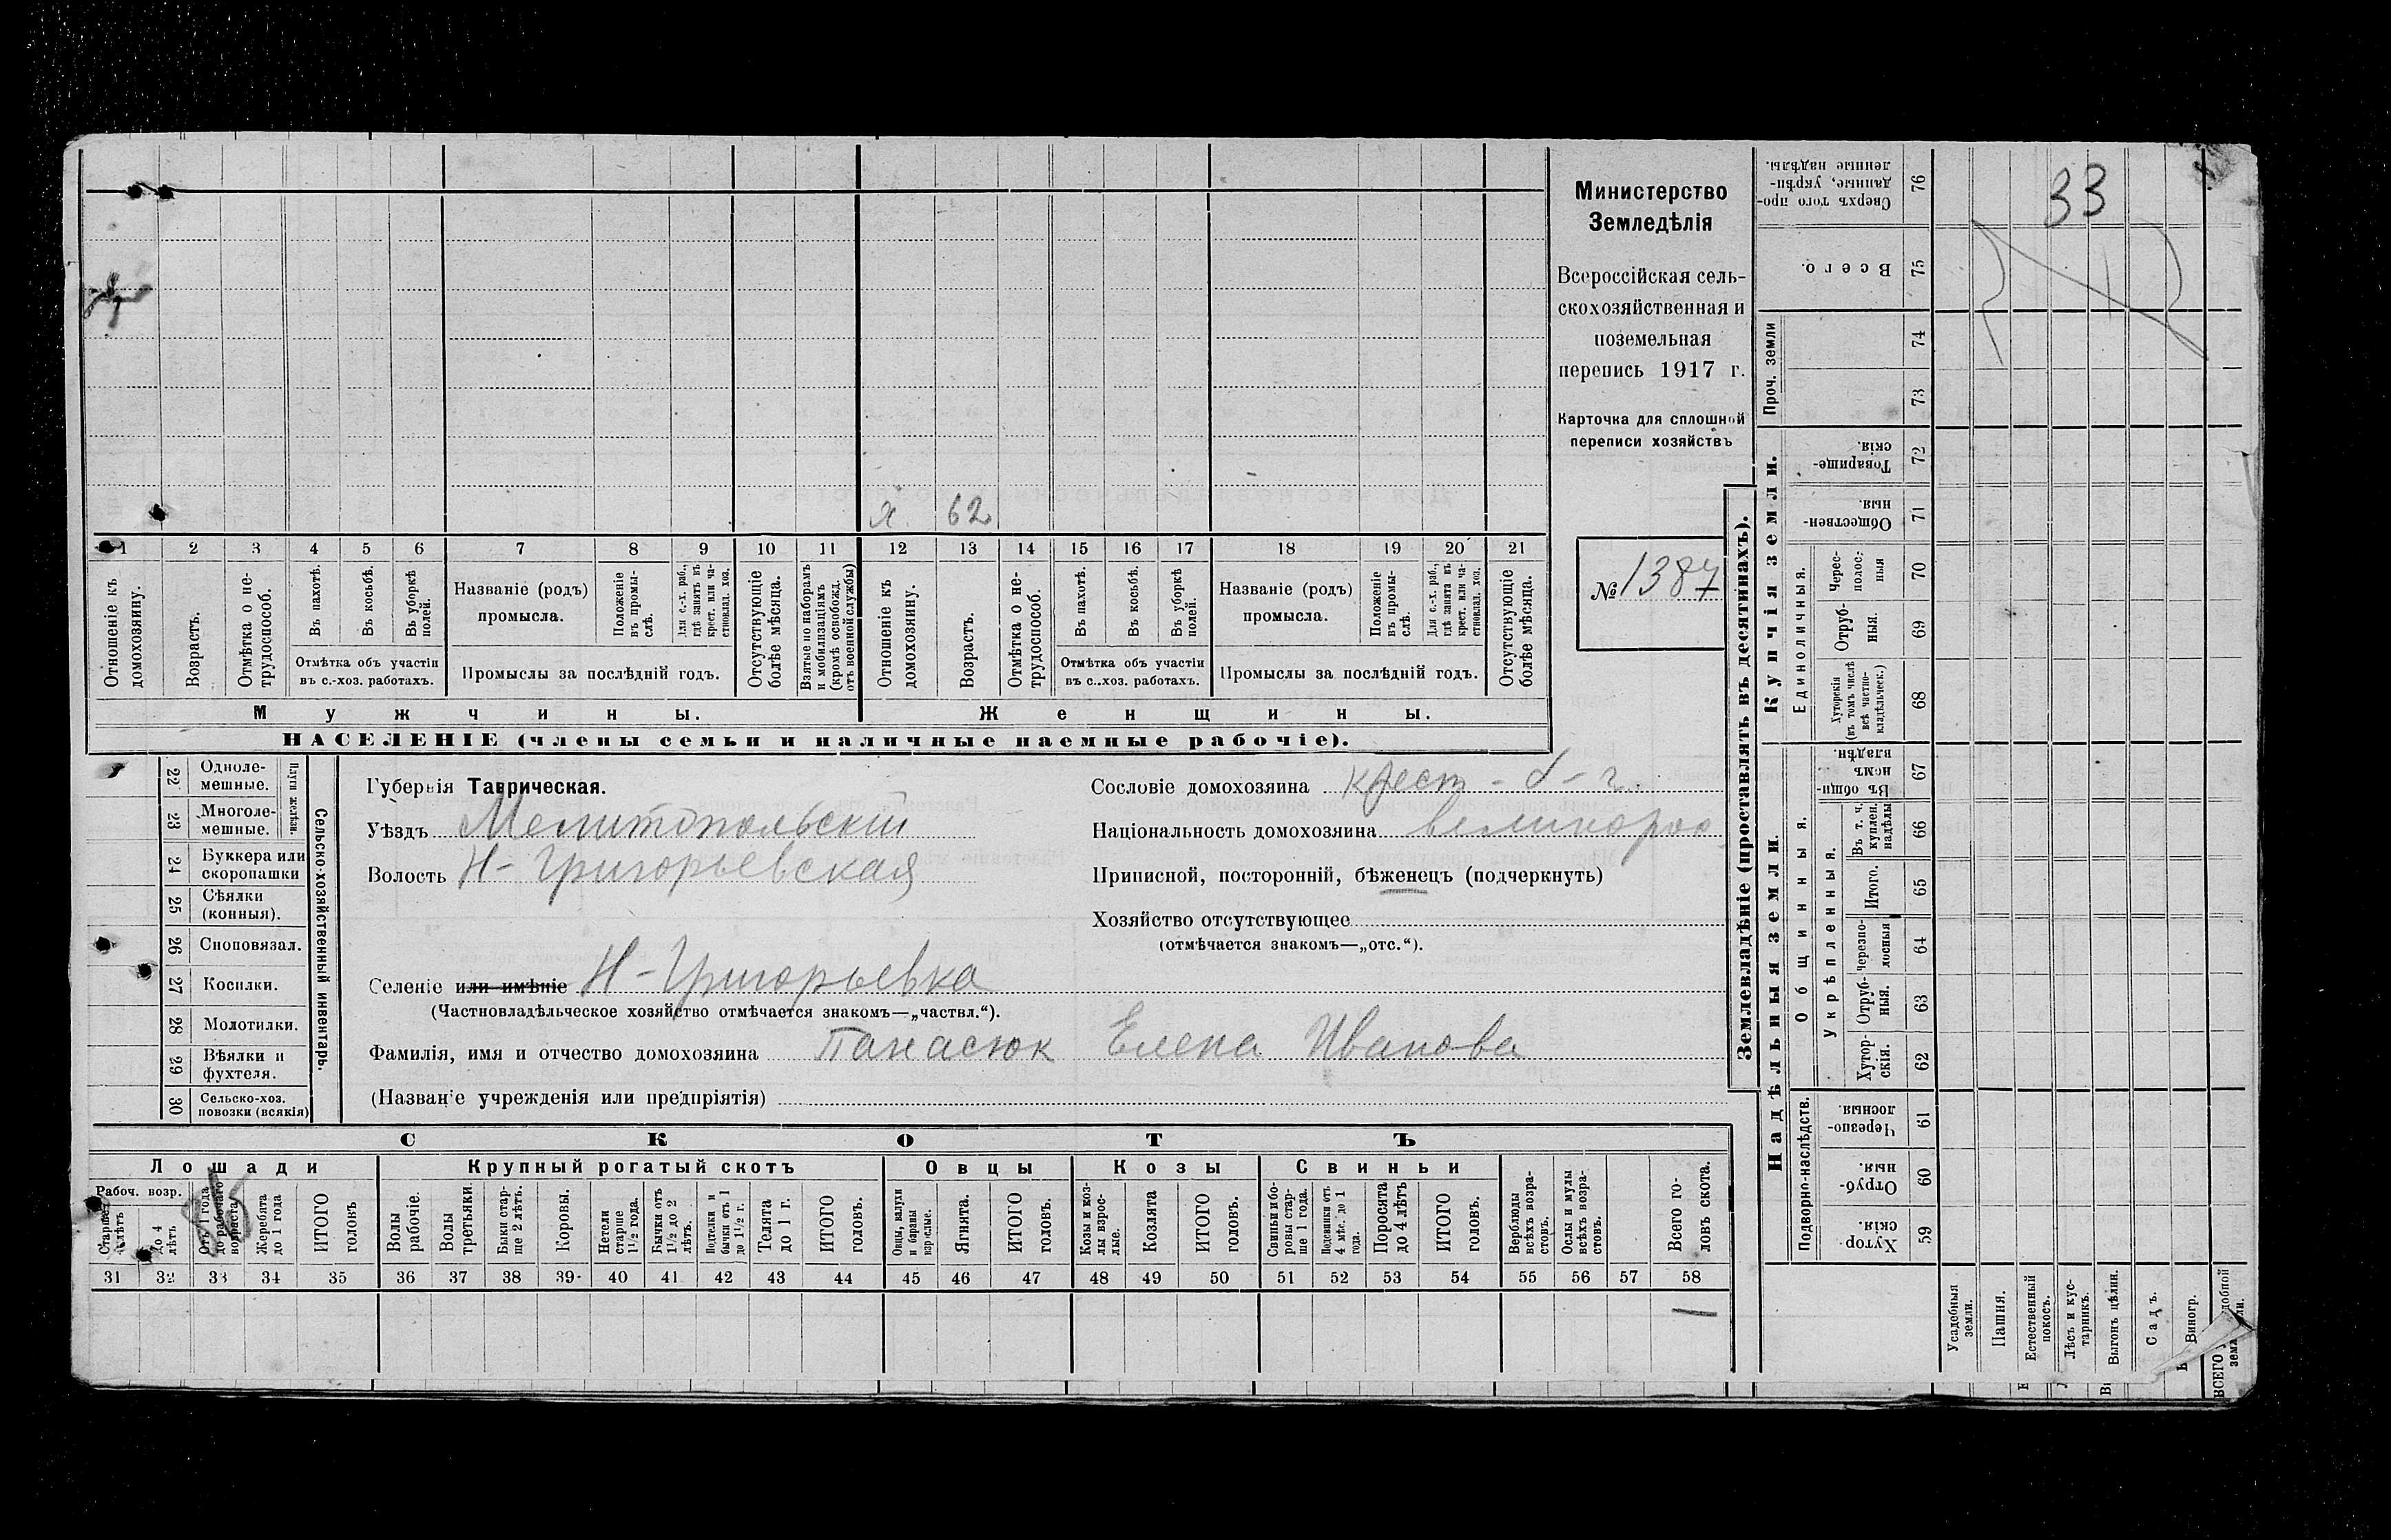 Министерство
Земледѣлія
Всероссійская сель-
скохозяйственная и
поземельная
перепись 1917 г.
Карточка для сплошной
переписи хозяйствъ
№ 1387
33
х 62
1 2 3 4 5 6 7 8 9 10 11 12 13 14 15 16 17 18 19 20 21
Отношеніе къ домохозяину.
Возрастъ.
Отмѣтка о не-трудоспособ.
Въ пахотѣ.
Въ косьбѣ.
Въ уборкѣ полей.
Отмѣтка объ участіи
въ с.-хоз. работахъ.
Названіе (родъ)
промысла.
Положеніе въ промы-слѣ.
Для с.-х. раб., гдѣ занятъ въ крест. или ча-стновлад. хоз.
Промыслы за послѣдній годъ.
Отсутствующіе болѣе мѣсяца.
Взятые по наборамъ и мобилизаціямъ (кромѣ освобожд. отъ военной службы)
Отношеніе къ домохозяину.
Возрастъ.
Отмѣтка о не-трудоспособ.
Въ пахотѣ.
Въ косьбѣ.
Въ уборкѣ полей.
Отмѣтка объ участіи
въ с..хоз. работахъ.
Названіе (родъ)
промысла.
Положеніе въ промы-слѣ.
Для с.-х. раб., гдѣ занята въ крест. или ча-стновлад. хоз.
Промыслы за послѣдній годъ.
Отсутствующіе болѣе мѣсяца.
Мужчины.
Женщины.
НАСЕЛЕНІЕ (члены семьи и наличные наемные рабочіе).
Сельско-хозяйственный инвентарь.
Плуги желѣзн.
22 Однолемешные.
23 Многоле-мешные.
24 Буккера или скоропашки
25 Сѣялки (конныя).
26 Сноповязал.
27 Косилки.
28 Молотилки.
29 Вѣялки и фухтеля.
30 Сельско-хоз. повозки (всякія)
Губернія Таврическая.
Уѣздъ Мелитопольскій
Волость Н-Григорьевская
Селеніе или имѣніе Н-Григорьевка
(Частновладѣльческое хозяйство отмѣчается знакомъ—„частвл.“).
Фамилія, имя и отчество домохозяина Панасюк Елена Иванова
(Названіе учрежденія или предпріятія)
Сословіе домохозяина крест
Національность домохозяина великорос
Приписной, посторонній, бѣженецъ (подчеркнуть)
Хозяйство отсутствующее
(отмѣчается знакомъ—„отс.“).
СКОТЪ
Лошади
Крупный рогатый скотъ
Овцы
Козы
Свиньи
Рабоч. возр.
Старше 4 лѣтъ
до 4 лѣтъ
Отъ 1 года до рабочаго возраста
Жеребята до 1 года
ИТОГО головъ
Волы рабочіе.
Волы третьяки.
Быки стар-ше 2 лѣтъ.
Коровы.
Нетели старше 1½ года.
Бычки отъ 1½ до 2 лѣтъ.
Подтелки и бычки отъ 1 до 1½ г.
Телята до 1 г.
ИТОГО головъ.
Овцы, валухи и бараны взрослые.
Ягнята.
ИТОГО головъ.
Козы и коз-лы взрос-лые.
Козлята
ИТОГО головъ.
Свиньи и бо-ровы стар-ше 1 года.
Подсвинки отъ 4 мѣс. до 1 года.
Поросята до 4 лѣтъ
ИТОГО головъ.
Верблюды всѣхъ возра-стовъ.
Ослы и мулы всѣхъ возра-стовъ.
Всего го-ловъ скота.
31 32 33 34 35 36 37 38 39 40 41 42 43 44 45 46 47 48 49 50 51 52 53 54 55 56 57 58
—
Землевладѣніе (проставлять въ десятинахъ).
Надѣльныя земли.
Купчія земли.
Проч. земли
Подворно-наслѣдств.
Общинныя.
Укрѣпленныя.
Единоличныя.
76 Сверхъ того про-данные, укрѣп-ленные надѣлы.
75 Всего.
74
73
72 Товарище-скія.
71 Обществен-ныя
70 Черес-полос-ныя
69 Отруб-ныя.
68 Хуторскія (въ томъ числѣ всѣ частно-владѣльческ.)
67 Въ общин-номъ владѣн.
66 Въ т. ч. куплен. надѣлы
65 Итого.
64 Черезпо-лосныя
63 Отруб-ныя.
62 Хутор-скія.
61 Черезпо-лосныя.
60 Отруб-ныя.
59 Хутор-скія.
Усадебныя земли.
Пашня.
Естественный покосъ.
Лѣсъ и кус-тарникъ.
Выгонъ цѣлин.
Садъ.
Виногр.
ВСЕГО